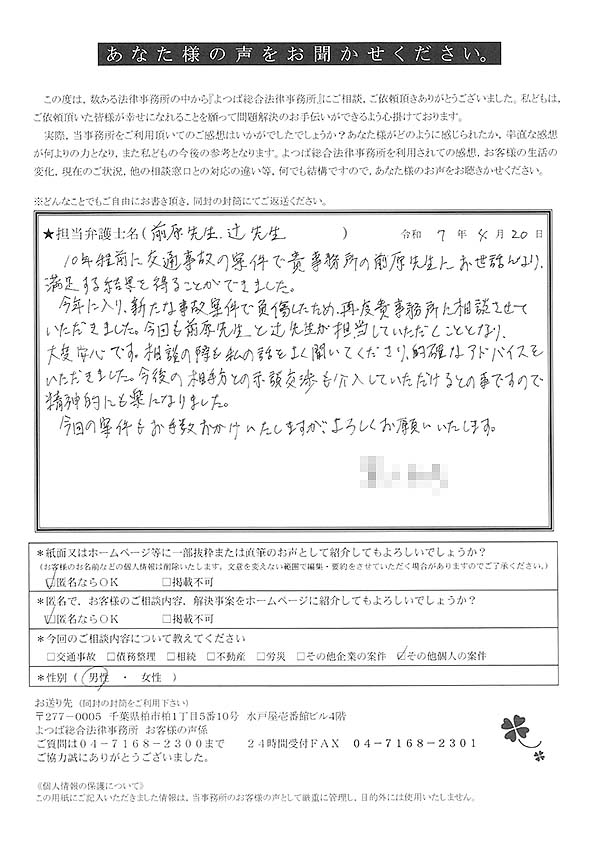 あなた様の声をお聞かせください。
この度は、数ある法律事務所の中から『よつば総合法律事務所』にご相談、ご依頼頂きありがとうございました。私どもは、
ご依頼頂いた皆様が幸せになれることを願って問題解決のお手伝いができるよう心掛けております。
実際、当事務所をご利用頂いてのご感想はいかがでしたでしょうか？あなた様がどのように感じられたか、率直な感想
が何よりの力となり、また私どもの今後の参考となります。よつば総合法律事務所を利用されての感想、お客様の生活の
変化、現在のご状況、他の相談窓口との対応の違い等、何でも結構ですので、あなた様のお声をお聴きかせください。
※どんなことでもご自由にお書き頂き、同封の封筒にてご返送ください。
★担当弁護士名（前原先生、辻先生） 令和 7 年 4 月 20 日
10年程前に交通事故の案件で貴事務所の前原先生にお世話になり、
満足する結果を得ることができました。
今年に入り、新たな事故案件で負傷したため、再度貴事務所に相談させて
いただきました。今回も前原先生と辻先生が担当していただくこととなり、
大変安心です。相談の際も私の話をよく聞いてくださり、的確なアドバイスを
いただきました。今後の相手方との示談交渉も介入していただけるとの事ですので
精神的にも楽になりました。
今回の案件もお手数おかけいたしますが、よろしくお願いいたします。
＊紙面又はホームページ等に一部抜粋または直筆のお声として紹介してもよろしいでしょうか？
（お客様のお名前などの個人情報は削除いたします。文意を変えない範囲で編集・要約をさせていただく場合がありますのでご了承ください。）
☑匿名ならＯＫ □掲載不可
＊匿名で、お客様のご相談内容、解決事案をホームページに紹介してもよろしいでしょうか？
☑匿名ならＯＫ □掲載不可
＊今回のご相談内容について教えてください
□交通事故 □債務整理 □相続 □不動産 □労災 □その他企業の案件 ☑その他個人の案件
＊性別（ 男性 ・ 女性 ）
お送り先（同封の封筒をご利用下さい）
〒277－0005 千葉県柏市柏1丁目5番10号 水戸屋壱番館ビル4階
よつば総合法律事務所 お客様の声係
ご質問は０４－７１６８－２３００まで ２４時間受付ＦＡＸ ０４－７１６８－２３０１
ご協力誠にありがとうございました。
《個人情報の保護について》
この用紙にご記入いただきました情報は、当事務所のお客様の声として厳重に管理し、目的外には使用いたしません。